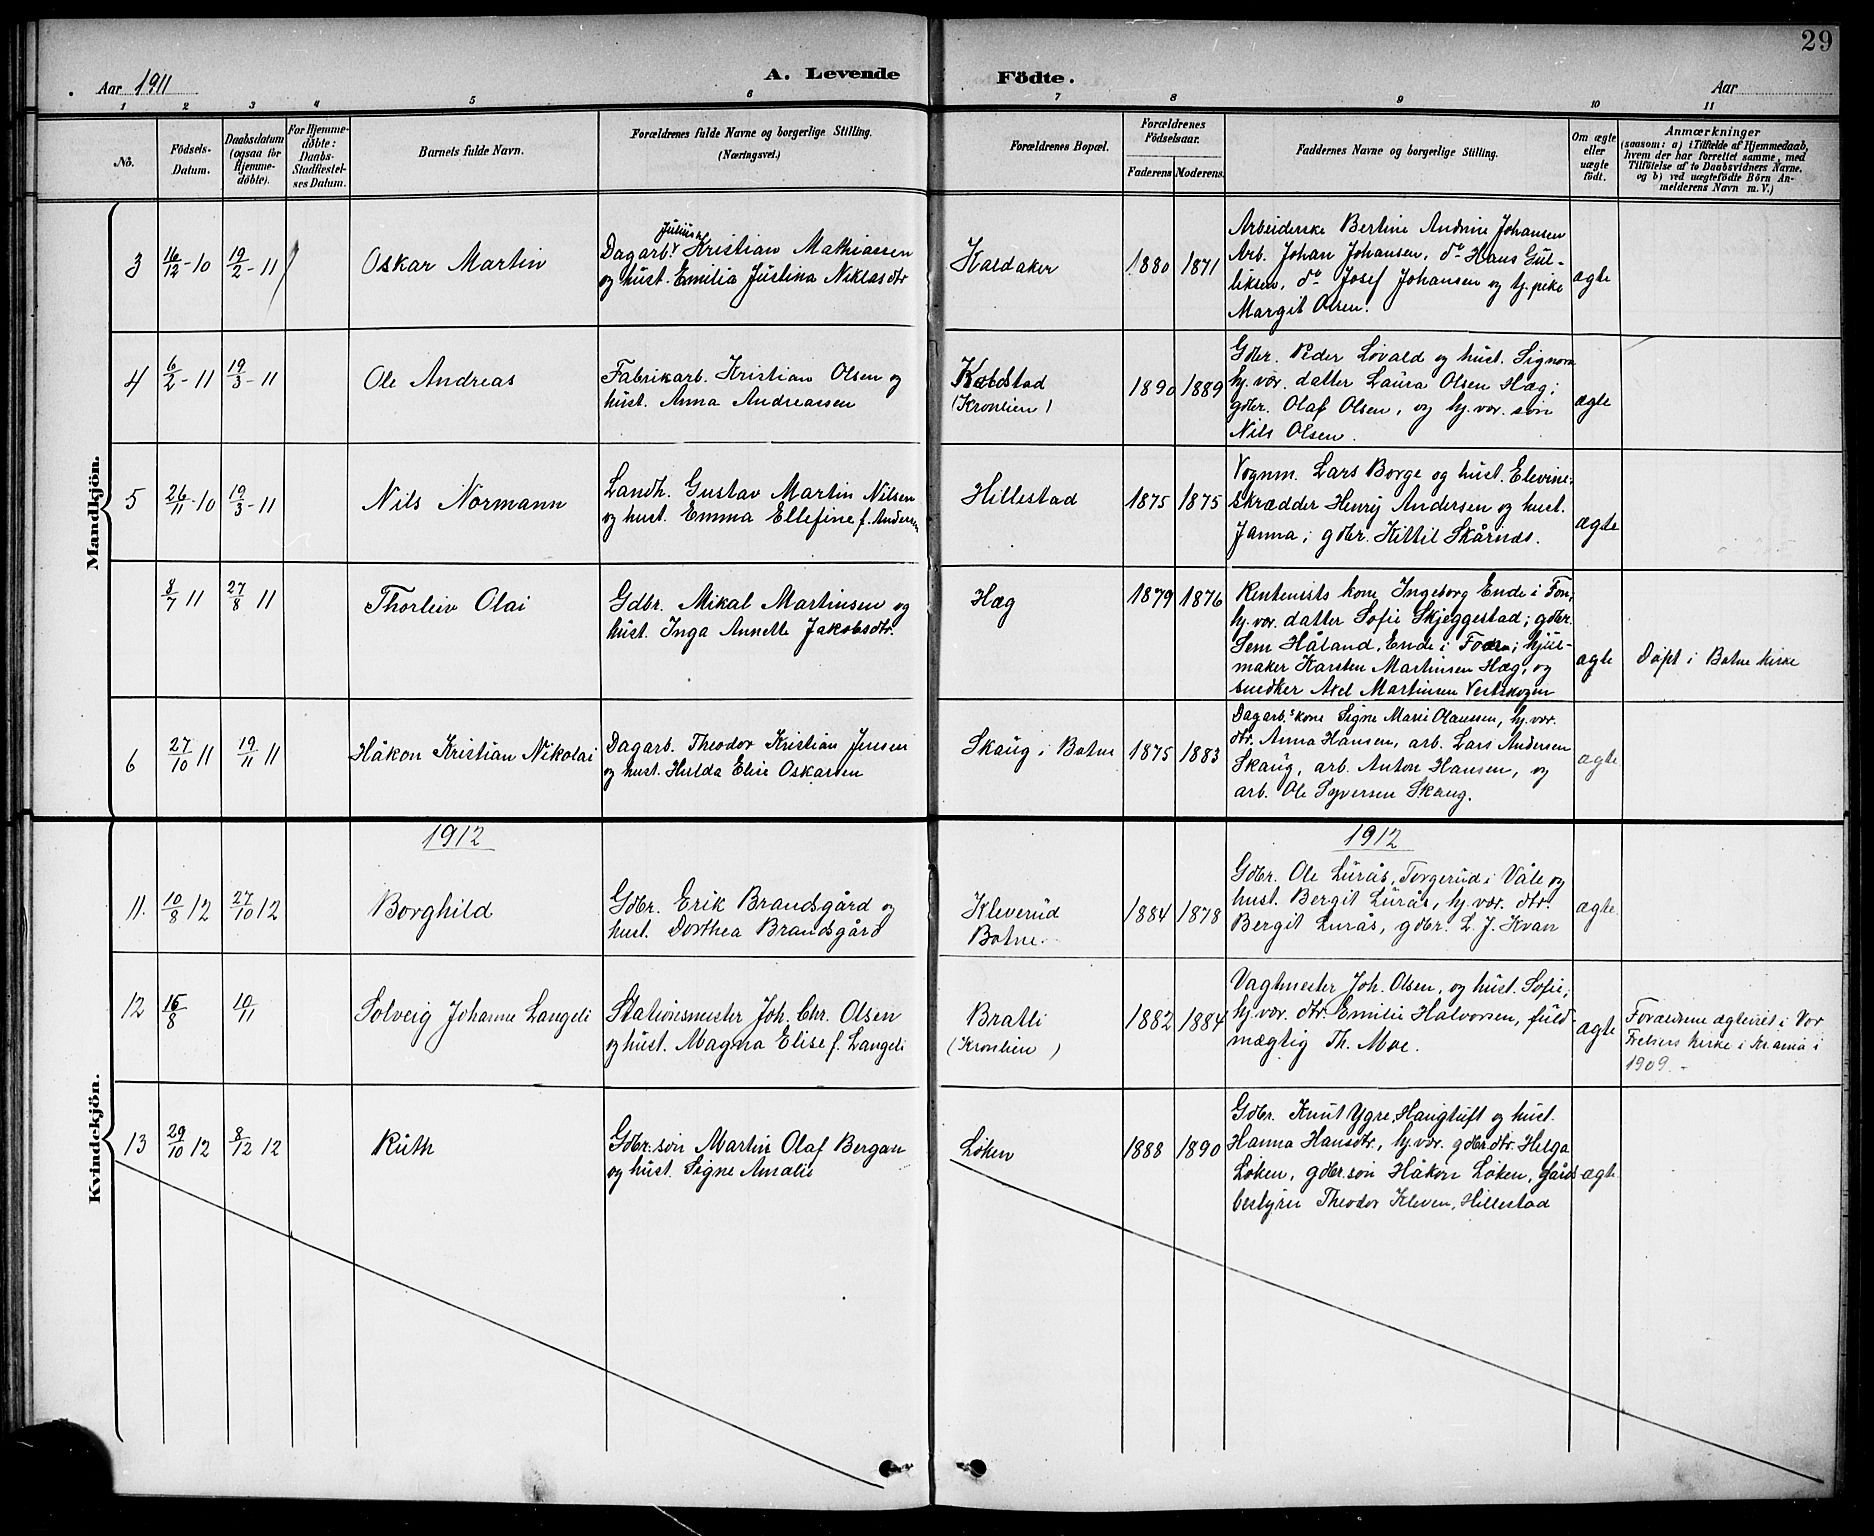 29
Aar 1911
A. Levende Födte.
Aar
1 2 3 4 5 6 7 8 9 10 11
No.
Födsels-Datum.
Daabsdatum (ogsaa for Hjemme-døbte).
For Hjemme-døbte: Daabs-Stadfæstel-ses Datum.
Barnets fulde Navn.
Forældrenes fulde Navne og borgerlige Stilling. (Næringsvei.)
Forældrenes Bopæl.
Forældrenes Födselsaar.
Faderens Moderens.
Faddernes Navne og borgerlige Stilling.
Om ægte eller uægte födt.
Anmærkninger
(saasom: a) i Tilfælde af Hjemmedaab,
hvem der har forrettet samme, med
Tilföielse af to Daabsvidners Navne.
og b) ved uægtefödte Börn An-
melderens Navn m. V.)
Mandkjön.
3 16/12-10 19/2-11 Oskar Martin
Julius
Dagarb. Kristian Mathiassen
og hust. Emilia Justina Niklasdtr
Kaldaker 1880 1871
Arbeiderske Bertine Andrine Johansen
Arb. Johan Johansen, do Hans Gul-
liksen, do Josef Johansen og tj. pike
Margit Olsen.
ægte
4 6/2-11 19/3-11 Ole Andreas
Fabrikarb. Kristian Olsen og
hust. Anna Andreassen
(Kronlien) 1890 1889
Gdbr. Peder Løvald og hust. Signora
hj.vær. datter Laura Olsen Hæg;
gdbr. Olaf Olsen, og hj. vær. søn
Nils Olsen.
ægte
5 26/11-10 19/3-11 Nils Normann
Landh. Gustav Martin Nilsen
og hust. Emma Ellefine f. Andersen
Hillestad 1875 1875
Vognm. Lars Borge og hust. Elevine;
skrædder Henry Andersen og hust.
Janna; gdbr. Kittil Skårnes.
ægte
8/7 11 27/8 11 Thorleiv Olai
Gdbr. Mikal Martinsen og
hust. Inga Annette Jakobsdtr.
Hæg 1879 1876
Rentenists kone Ingeborg Ende i Fon,
hj. vær. datter Sofie Skjeggestad; gdbr.
Sem Håland, Ende i Foen; hjul-
maker Karsten Martinsen Hæg, og
snedker Axel Martinsen Vestskogen
ægte Døpt i Botne kirke
6 27/10 11 19/11 11 Håkon Kristian Nikolai
Dagarb. Theodor Kristian Jensen
og hust. Hulda Elise Oskarsen
Skaug i Botne 1875 1883
Dagarb.s kone Signe Marie Olaussen, hj. vær.
dtr. Anna Hansen, arb. Lars Andersen
Skaug, arb. Anton Hansen, og
arb. Ole Syversen Skaug.
ægte
Kvindekjön.
1912 1912
11. 10/8 12 27/10 12 Borghild
Gdbr. Erik Brandsgård og
hust. Dorthea Brandsgård
Kleverud
Botne. 1884 1878
Gdbr. Ole Lurås, Torgerud i Våle og
hust. Bergit Lurås, hj. vær. dtr.
Bergit Lurås, gdbr. L. J. Kvan
ægte
12 15/8 10/11 Solveig Johanne Langeli
Stationsmester Joh. Chr. Olsen
og hust. Magna Elise f. Langeli
Bratli
(Kronlien) 1882 1884
Vagtmester Joh. Olsen, og hust. Sofie;
hj. vær. dtr. Emilie Halvorsen, fuld-
mægtig Th. Moe.
ægte
Forældrene ægteviet i Vor
Frelsers kirke i Kr.ania i
1909.-
13 29/10 12 8/12 12 Ruth
Gdbr. søn Martin Olaf Bergan
og hust. Signe Amalie
Løken 1888 1890
Gdbr. Knut Ygre, Haugtuft og hust.
Hanna Hansdtr, hj. vær. gdbr.dtr. Helga
Løken, gdbr. søn Håkon Løken, gårds
bestyrer Theodor Kleven, Hillestad
ægte